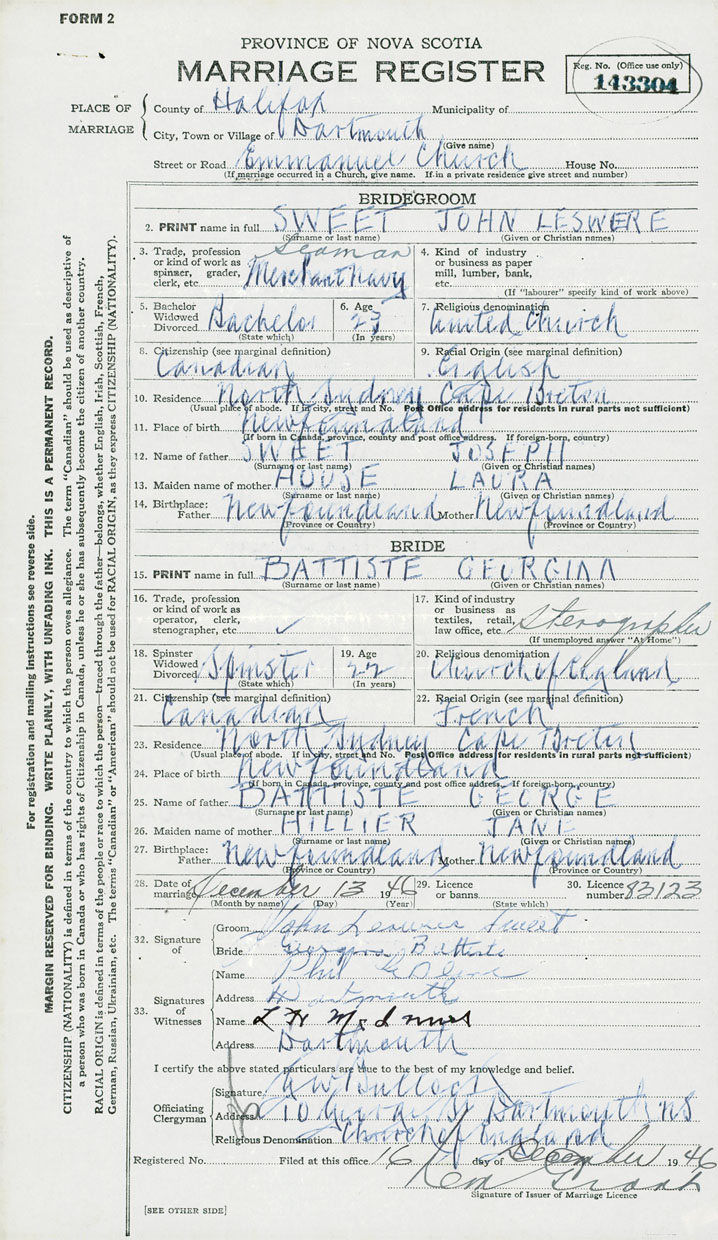 FORM 2
PROVINCE OF NOVA SCOTIA
MARRIAGE REGISTER
Reg. No. (Office use only)
143304
PLACE OF MARRIAGE
County of Halifax Municipality of
City, Town or Village of Dartmouth
(Give name)
Street or Road Emmanuel Church House No.
(If marriage occurred in a Church, give name. If in a private residence give street and number)
BRIDEGROOM
2. PRINT name in full SWEET JOHN LESWERE
(Surname or last name) (Given or Christian names)
3. Trade, profession or kind of work as spinner, grader, clerk, etc. Seaman Merchant Navy
4. Kind of industry or business as paper mill, lumber, bank, etc.
(If "labourer" specify kind of work above)
5. Bachelor Widowed Divorced Bachelor
(State which)
6. Age 23
(In years)
7. Religious denomination United Church
8. Citizenship (see marginal definition) Canadian
9. Racial Origin (see marginal definition) English
10. Residence North Sydney Cape Breton
(Usual place of abode. If in city, street and No. Post Office address for residents in rural parts not sufficient)
11. Place of birth Newfoundland
(If born in Canada, province, county and post office address. If foreign-born, country)
12. Name of father SWEET JOSEPH
(Surname or last name) (Given or Christian names)
13. Maiden name of mother HOUSE LAURA
(Surname or last name) (Given or Christian names)
14. Birthplace: Father Newfoundland Mother Newfoundland
(Province or Country) (Province or Country)
BRIDE
15. PRINT name in full BATTISTE GEORGINA
(Surname or last name) (Given or Christian names)
16. Trade, profession or kind of work as operator, clerk, stenographer, etc. ✓
17. Kind of industry or business as textiles, retail, law office, etc. Stenographer
(If unemployed answer "At Home")
18. Spinster Widowed Divorced Spinster
(State which)
19. Age 22
(In years)
20. Religious denomination Church of England
21. Citizenship (see marginal definition) Canadian
22. Racial Origin (see marginal definition) French
23. Residence North Sydney Cape Breton
(Usual place of abode. If in city, street and No. Post Office address for residents in rural parts not sufficient)
24. Place of birth Newfoundland
(If born in Canada, province, county and post office address. If foreign-born, country)
25. Name of father BATTISTE GEORGE
(Surname or last name) (Given or Christian names)
26. Maiden name of mother HILLIER JANE
(Surname or last name) (Given or Christian names)
27. Birthplace: Father Newfoundland Mother Newfoundland
(Province or Country) (Province or Country)
28. Date of marriage December 13 1946
(Month by name) (Day) (Year)
29. Licence or banns
(State which)
30. Licence number 83123
32. Signature of
Groom John Sweet
Bride Georgina Battiste
33. Signatures of Witnesses
Name Phil
Address Dartmouth
Name L H McInnes
Address Dartmouth
I certify the above stated particulars are true to the best of my knowledge and belief.
Officiating Clergyman
Signature Bullock
Address 10 George St Dartmouth NS
Religious Denomination Church of England
Registered No. Filed at this office 16 day of December 1946
Signature of Issuer of Marriage Licence
[SEE OTHER SIDE]
For registration and mailing instructions see reverse side.
MARGIN RESERVED FOR BINDING. WRITE PLAINLY, WITH UNFADING INK. THIS IS A PERMANENT RECORD.
CITIZENSHIP (NATIONALITY) is defined in terms of the country to which the person owes allegiance. The term "Canadian" should be used as descriptive of
a person who was born in Canada or who has rights of Citizenship in Canada, unless he or she has subsequently become the citizen of another country.
RACIAL ORIGIN is defined in terms of the people or race to which the person—traced through the father—belongs, whether English, Irish, Scottish, French,
German, Russian, Ukrainian, etc. The terms "Canadian" or "American" should not be used for RACIAL ORIGIN, as they express CITIZENSHIP (NATIONALITY).